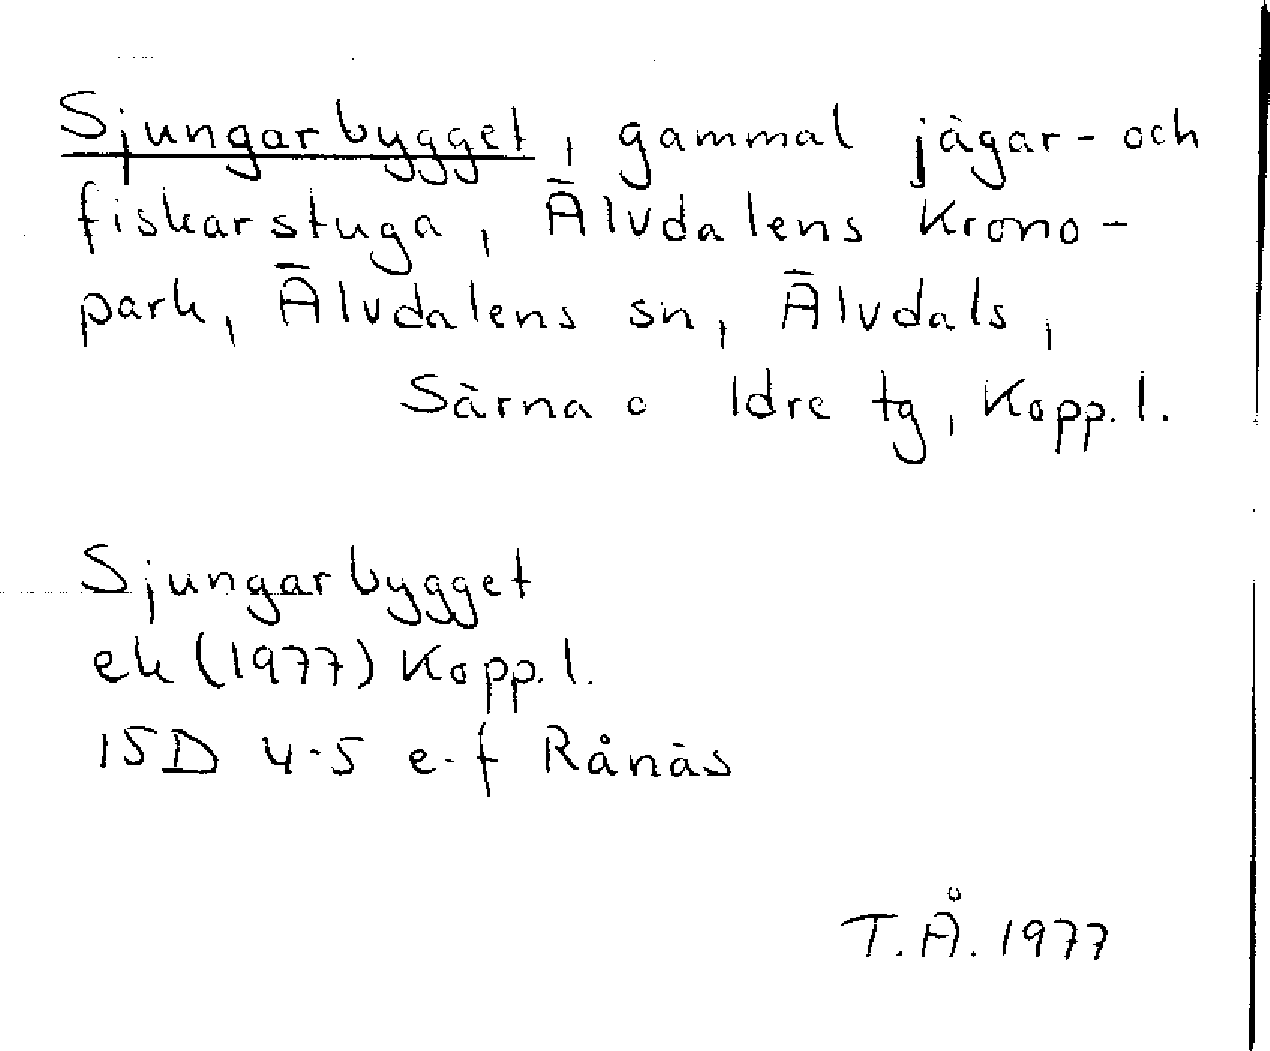 Sjungarbygget, gammal jägar- och
fiskarstuga, Älvdalens Krono-
park, Älvdalens sn, Älvdals,
Särna o Idre tg, Kopp. l.
Sjungarbygget
ek (1977) Kopp. l.
15D 4-5 e-f Rånäs
T.Å. 1977